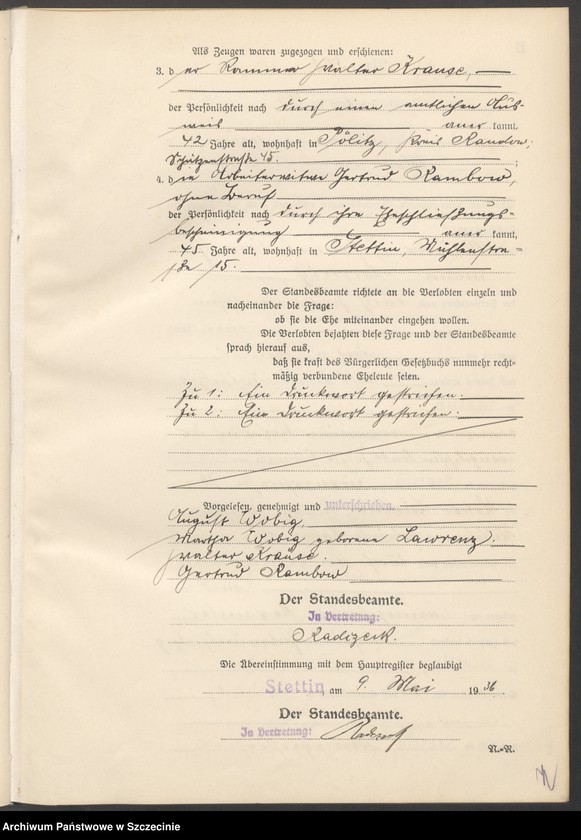 Als Zeugen waren zugezogen und erschienen:
3. der Rammer Walter Krause,
der Persönlichkeit nach durch einen amtlichen Aus-
weis anerkannt,
42 Jahre alt, wohnhaft in Pölitz, Kreis Randow,
Schützenstraße 45.
4. die Arbeiterwitwe Gertrud Rambow,
ohne Beruf
der Persönlichkeit nach durch ihre Eheschließungs-
bescheinigung anerkannt,
45 Jahre alt, wohnhaft in Stettin, Mühlenstra-
ße 15.
Der Standesbeamte richtete an die Verlobten einzeln und
nacheinander die Frage:
ob sie die Ehe miteinander eingehen wollen.
Die Verlobten bejahten diese Frage und der Standesbeamte
sprach hierauf aus,
daß sie kraft des Bürgerlichen Gesetzbuchs nunmehr recht-
mäßig verbundene Eheleute seien.
Zu 1: Ein Druckwort gestrichen.
Zu 2: Ein Druckwort gestrichen.
Vorgelesen, genehmigt und unterschrieben.
August Wobig
Martha Wobig geborene Lawrenz.
Walter Krause.
Gertrud Rambow
Der Standesbeamte.
In Vertretung:
Radizeck.
Die Übereinstimmung mit dem Hauptregister beglaubigt
Stettin, am 9. Mai 1936.
Der Standesbeamte.
In Vertretung:
N.-R.
Archiwum Państwowe w Szczecinie